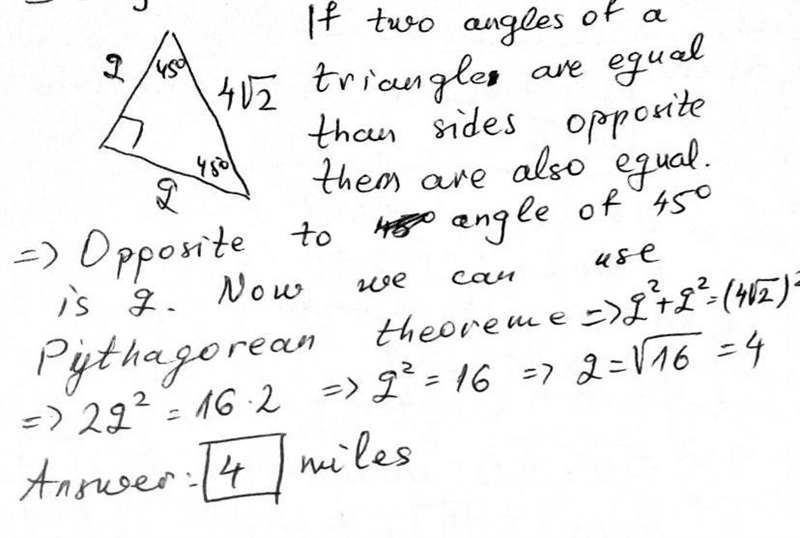 If two angles of a
g 45° 4√2 triangle are equal
than sides opposite
45° them are also equal.
g
=> Opposite to angle of 45°
is g. Now we can use
Pythagorean theoreme => g² + g² = (4√2)²
=> 2g² = 16·2 => g² = 16 => g = √16 = 4
Answer: 4 miles